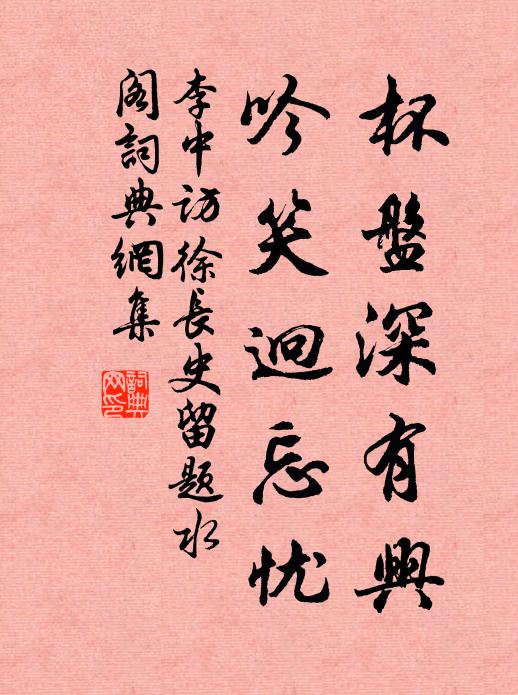 杯盤深有興
吟笑迴忘忧
李中訪徐長史留題水
閣詞典網集
詞典
网印